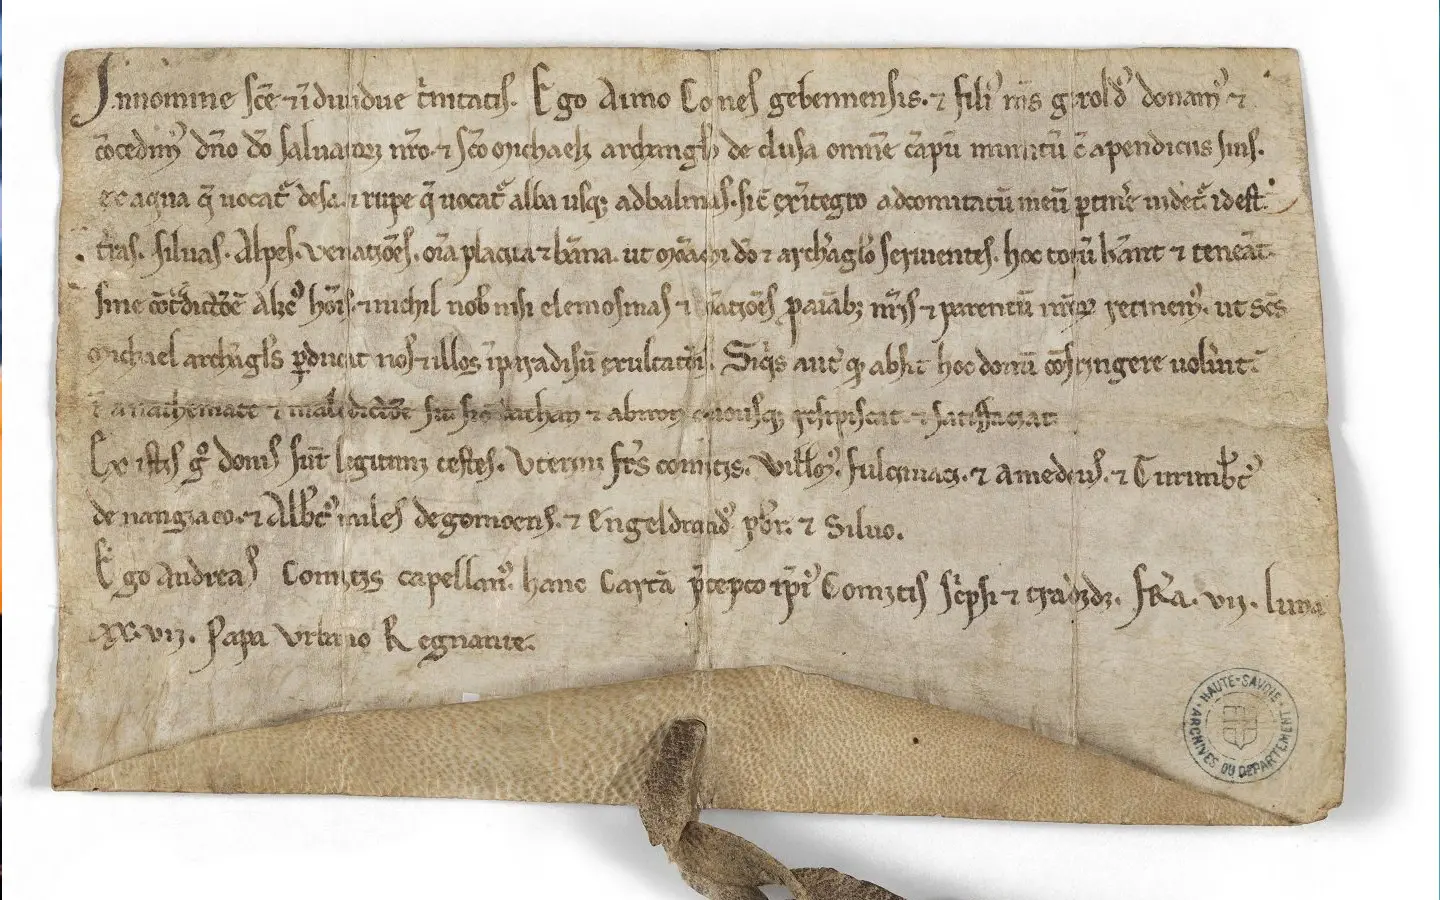 In nomine sc̄e ⁊ īdiuidue t̄nitatis. Ego Aimo Comes gebennensis. ⁊ filiꝰ mꝰs giroldꝰ donamꝰ ⁊
c̄ocedimꝰ dn̄o dō saluatori nr̄o. ⁊ sc̄o michaeli archanglo de clusa omnē cāpū munitū c̄ apendiciis suis.
ex aqua q̄ uocat̄ desa. ⁊ rupe q̄ uocat̄ alba usq; ad balmas. sic̄ ex ītegro ad comitatū meū ptinere uidet̄ id est
t̄ras. siluas. Alpes. venatiōes. om̄ia placita ⁊ bāna. ut monachi dō ⁊ archāglo seruientes. hoc totū habeāt ⁊ teneāt
sine cōtdictiōe alic̄ꝰ hoīs. ⁊ nichil nob nisi elemosinas ⁊ oratiōes p aīab; nr̄is ⁊ parentū nr̄oꝝ retinemꝰ. ut sc̄s
michael archāgls pducat nos ⁊ illos ī paradisū exultatiōis. Siq̄s aut̄ qꝰ absit hoc donū cōfringere uoluerit
ī anathemate ⁊ maledictiōe sit sic̄ dathan ⁊ abiron quousq; resipiscat ⁊ satisfaciat
Ex istis gͦ donis sunt legitimi testes. Vterini frs comitis. Willꝰ. fulciniaci. ⁊ amedeus. ⁊ Turumbtꝰ
de nangiaco. ⁊ Albtꝰ miles de gomoens. ⁊ Engeldrandꝰ pbr. ⁊ Siluo.
Ego Andreas Comitis capellanꝰ. hanc Cartā p̄cepto ipiꝰ Comitis sc̄psi ⁊ tradidi. fr̄a. vii. luna
xx. vii. Papa Vrbano Regnante.
HAUTE-SAVOIE
ARCHIVES DU DEPARTEMENT